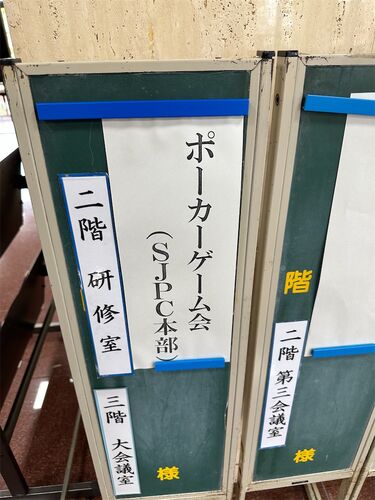 ポーカーゲーム会
（SJPC本部）
二階 研修室
三階 大会議室
様
階
二階 第三会議室
様